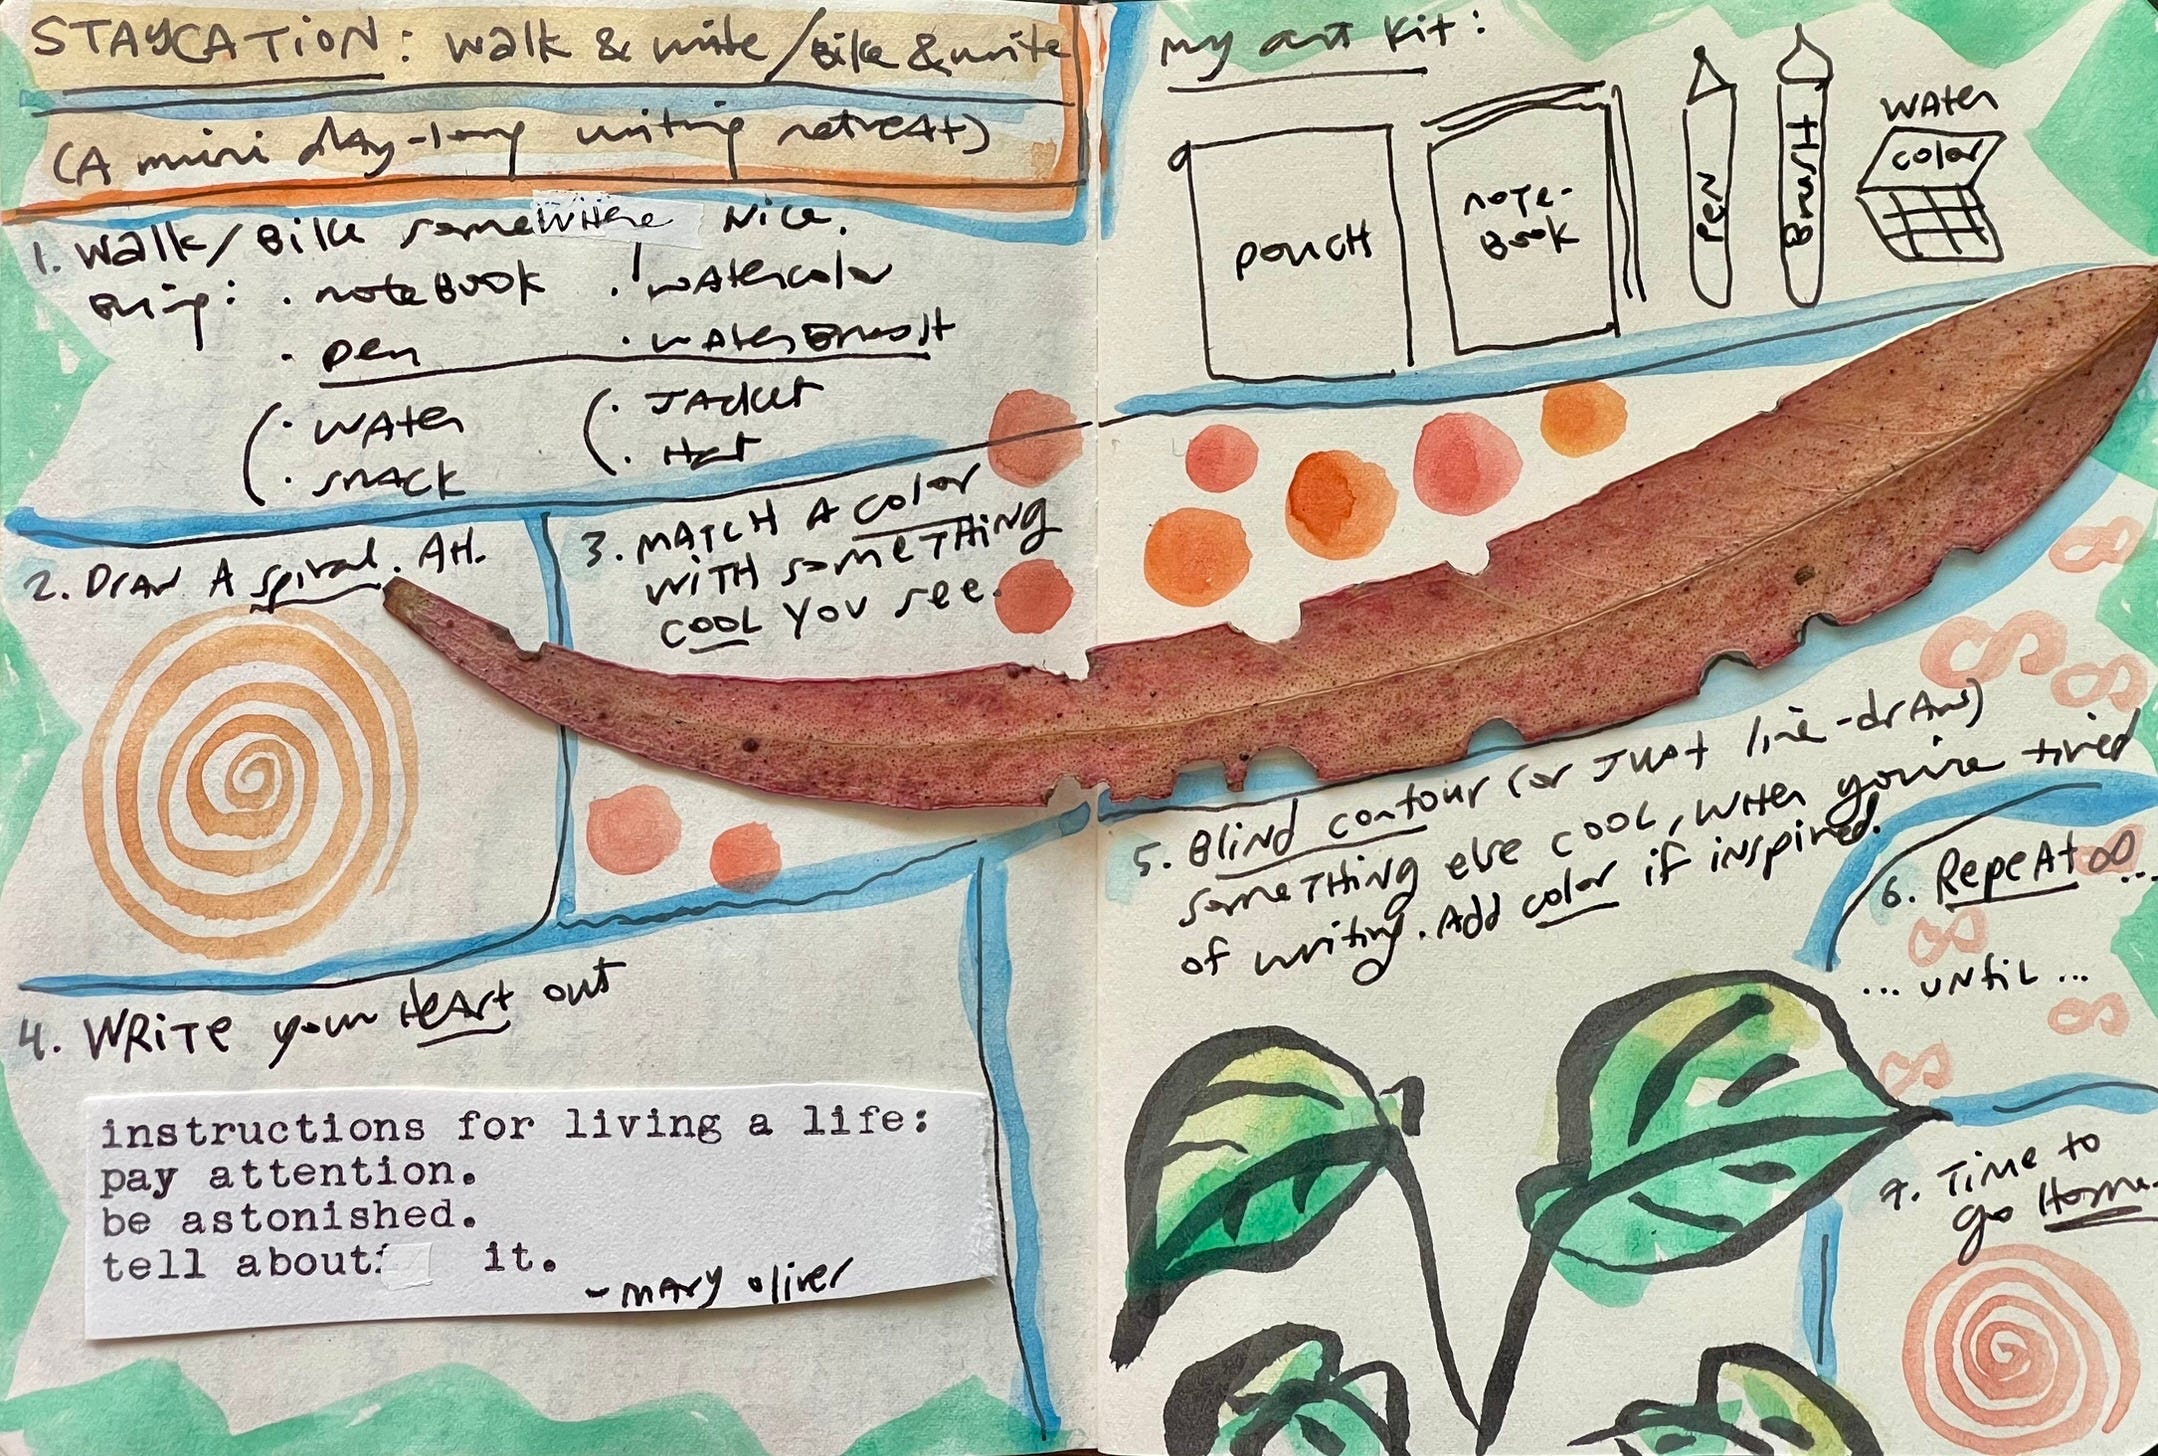 STAYCATION: walk & write/Bike & write
(A mini day-long writing retreat)
1. walk/Bike somewhere Nice.
Bring: · noteBook · watercolor
· pen · waterBrush
(· water (· Jacket
· snack · Hat
2. Draw A spiral. AH.
3. MATCH A color
WITH someTHING
COOL YOU see.
4. WRiTe your HeArt out
instructions for living a life:
pay attention.
be astonished.
tell about it.
- mary oliver
my art kit:
pouch
note-
Book
pen
Brush
water
color
5. Blind contour (or Just line-draw)
someTHING else cool, when you're tired
of writing. Add color if inspired.
6. RepeAt ∞ ...
... until ...
7. Time to
go Home.